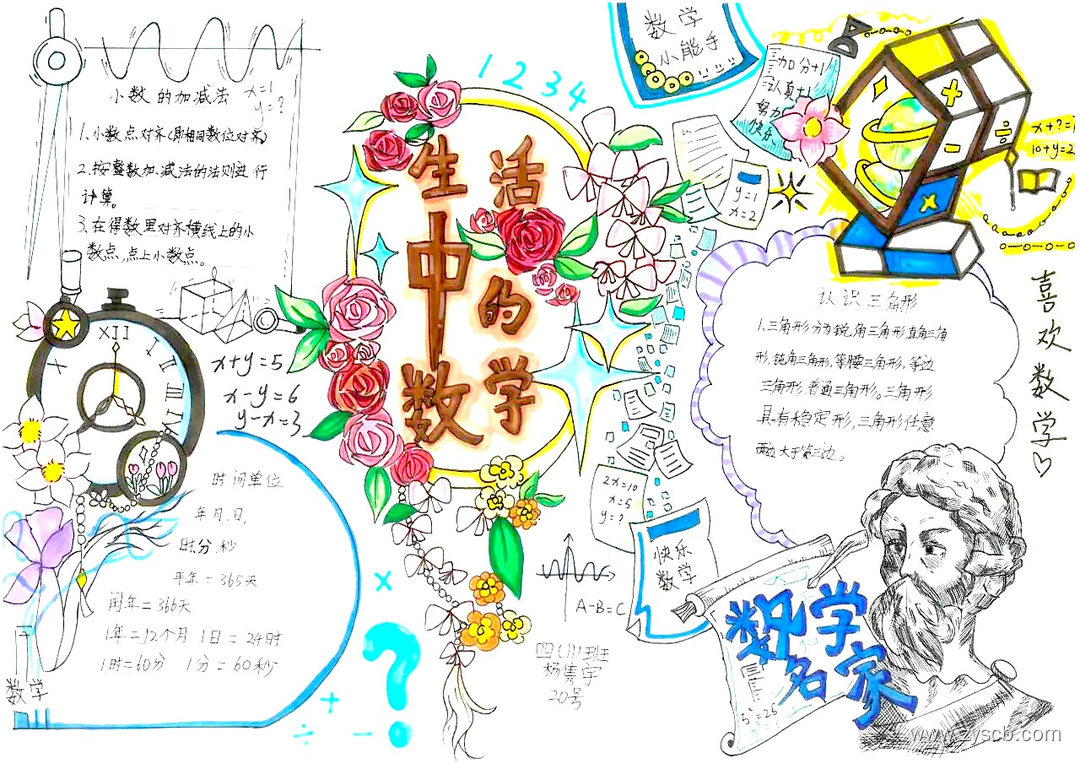 小数的加减法
x=1
y=?
1.小数点对齐(即相同数位对齐)
2.按整数加.减法的法则进行
计算。
3.在得数里对齐横线上的小
数点,点上小数点。
XII
x+y=5
x-y=6
y-x=3
时间单位
年.月.日.
时分秒
平年=365天
闰年=366天
1年=12个月 1日=24时
1时=60分 1分=60秒
数学
1 2 3 4
生活
中的
数学
数学
小能手
加分+1
认真+1
努力
快乐
y=1
x=2
x+?=1
10+y=2
喜欢数学
认识三角形
1.三角形分为锐角三角形,直角三角
形,钝角三角形,等腰三角形,等边
三角形,普通三角形。三角形
具有稳定形,三角形任意
两边大于第三边。
2x=10
x=5
y=?
快乐
数学
A-B=C
四(1)班
杨隽宇
20号
数学
名家
www.zyscb.com